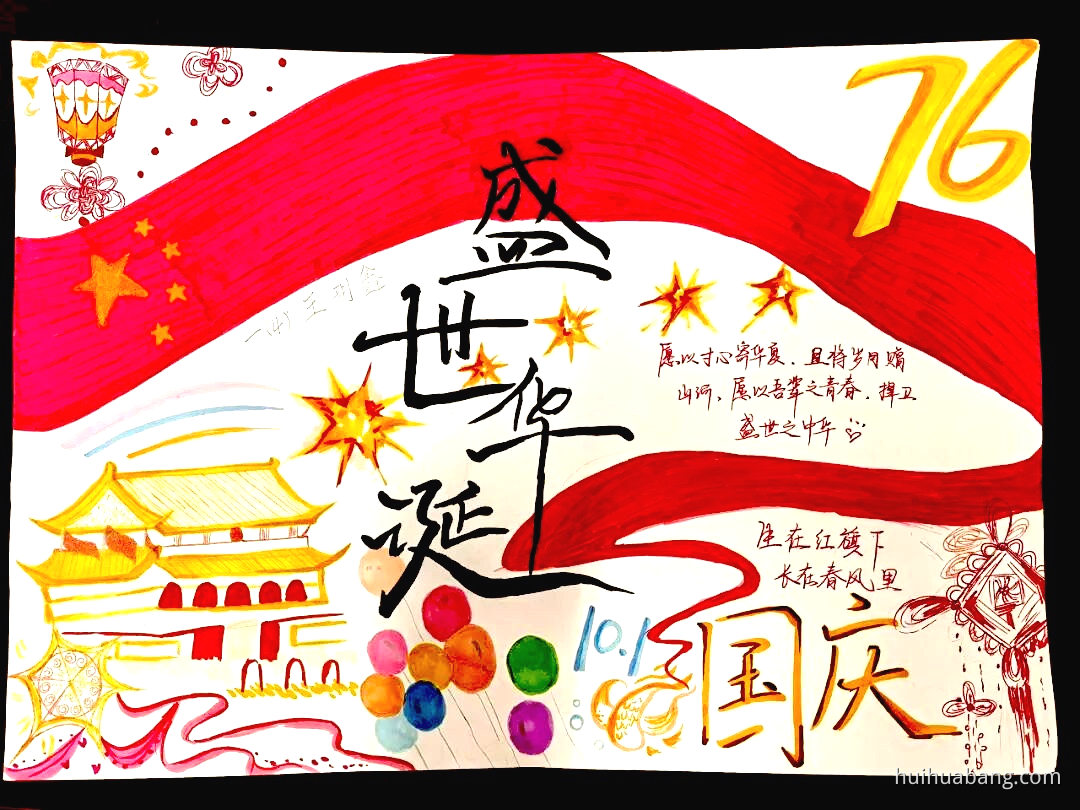 76
盛世华诞
愿以寸心寄华夏、且将岁月赠
山河、愿以吾辈之青春、捍卫
盛世之中华
生在红旗下
长在春风里
10.1
国庆
huihuabang.com